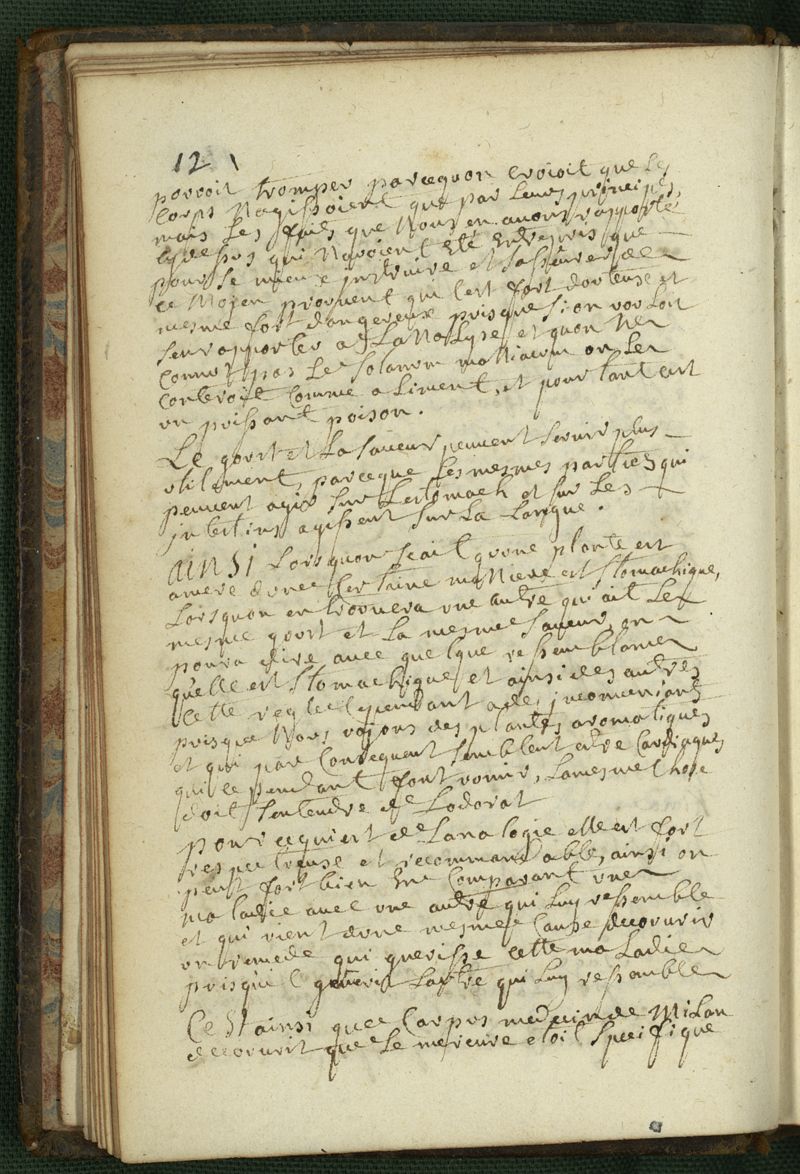 12
pouvoit tromper parcequon croioit que les
Corps Nagissoient que par leurs principes,
mais les faits que Nous en auons rapporté
cy dehors qui Navoient Eté Entrepris que
pour se mieux jnstruire et sasseurer de
ce Moyen prouuent qu il est fort douteuse et
mesme fort dangereux puisque si on vouloit
sen rapporter a LaNalyse et quon Ne
connut pas Le Solanum on Le
conteroit comme aliment, et pourtant cest
un puissant poison.
Le goust et La saueur peuuent seruir plus
utilement, parceque Les mesmes parties qui
peuuent agir sur Lestomach et sur Les
jntestins agissent sur La Langue.
AINSI Lorsquon scait quune plante est
amere dune certaine maNiere est stomachique,
Lorsquon en trouuera une autre qui ait Le
mesme goust et La mesme saueur, on
poura dire auec quelque ressemblance
quelle est stomachique et ainsi des autres
cette regle cependant a des jnconueniants
puisque Nous voions des plantes aromatiques
et qui par Consequent semblent estre Cardiaques
qui cependant font vomir, Lamesme chose
doit sentendre de Lodorat
pour ce qui est de Lanalogie elle est fort
respectueuse et recommandable, ainsi on
peut fort bien En Comparant une
maladie auec une autre qui Luy ressemble
et qui vient dune mesme Cause decouurir
un remede qui guerisse cette maladie
puisqu'il guerit Lautre qui Luy ressemble
Cest ainsi que Carpus medecin de Milan
decouurit que Le mercure etoit specifique